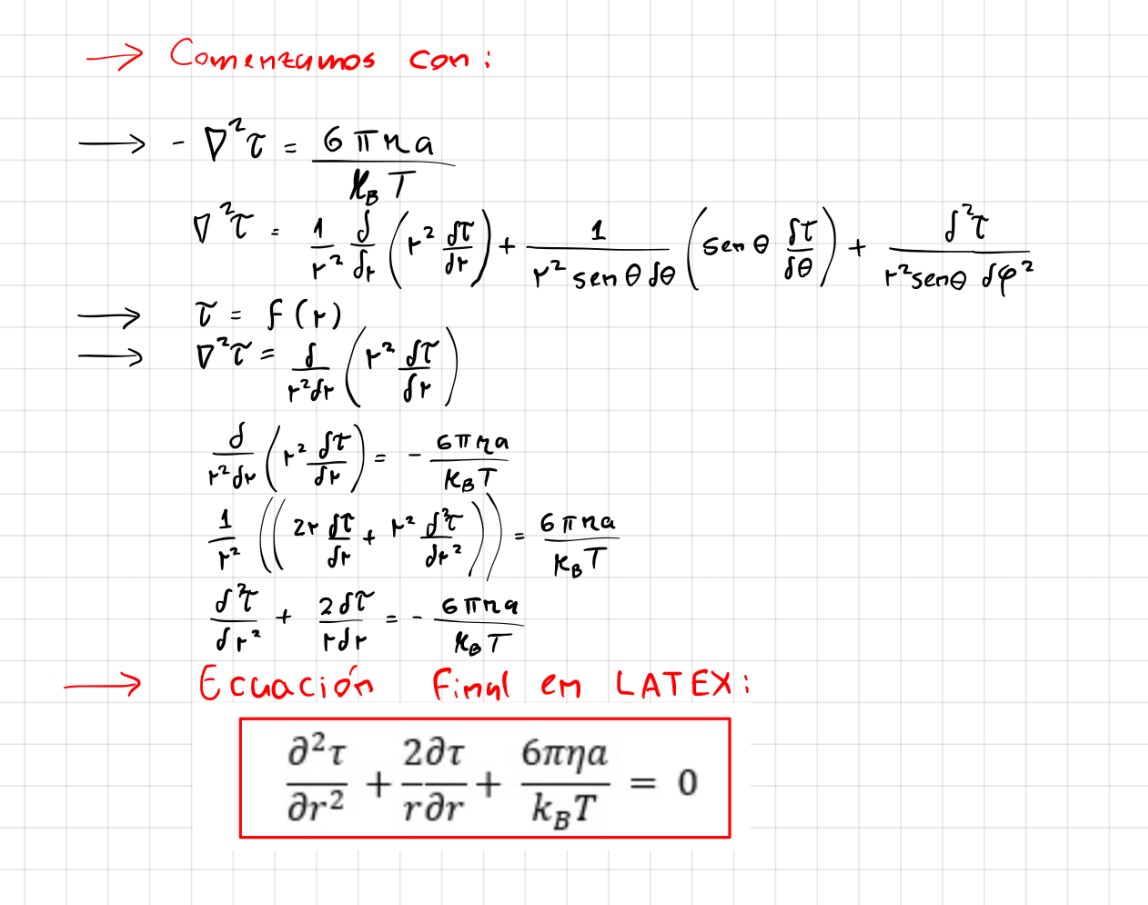 → Comenzamos con:
→ - ∇²τ = 6πηa / k_B T
∇²τ = 1/r² δ/δr (r² δτ/δr) + 1/(r² sen θ δθ) (sen θ δτ/δθ) + δ²τ/(r² senθ δφ²)
→ τ = f(r)
→ ∇²τ = δ/(r²δr) (r² δτ/δr)
δ/(r²δr) (r² δτ/δr) = - 6πηa / k_B T
1/r² ((2r δτ/δr + r² δ²τ/δr²)) = 6πηa / k_B T
δ²τ/δr² + 2δτ/(rδr) = - 6πηa / k_B T
→ Ecuación Final en LATEX:
∂²τ/∂r² + 2∂τ/(r∂r) + 6πηa/(k_B T) = 0